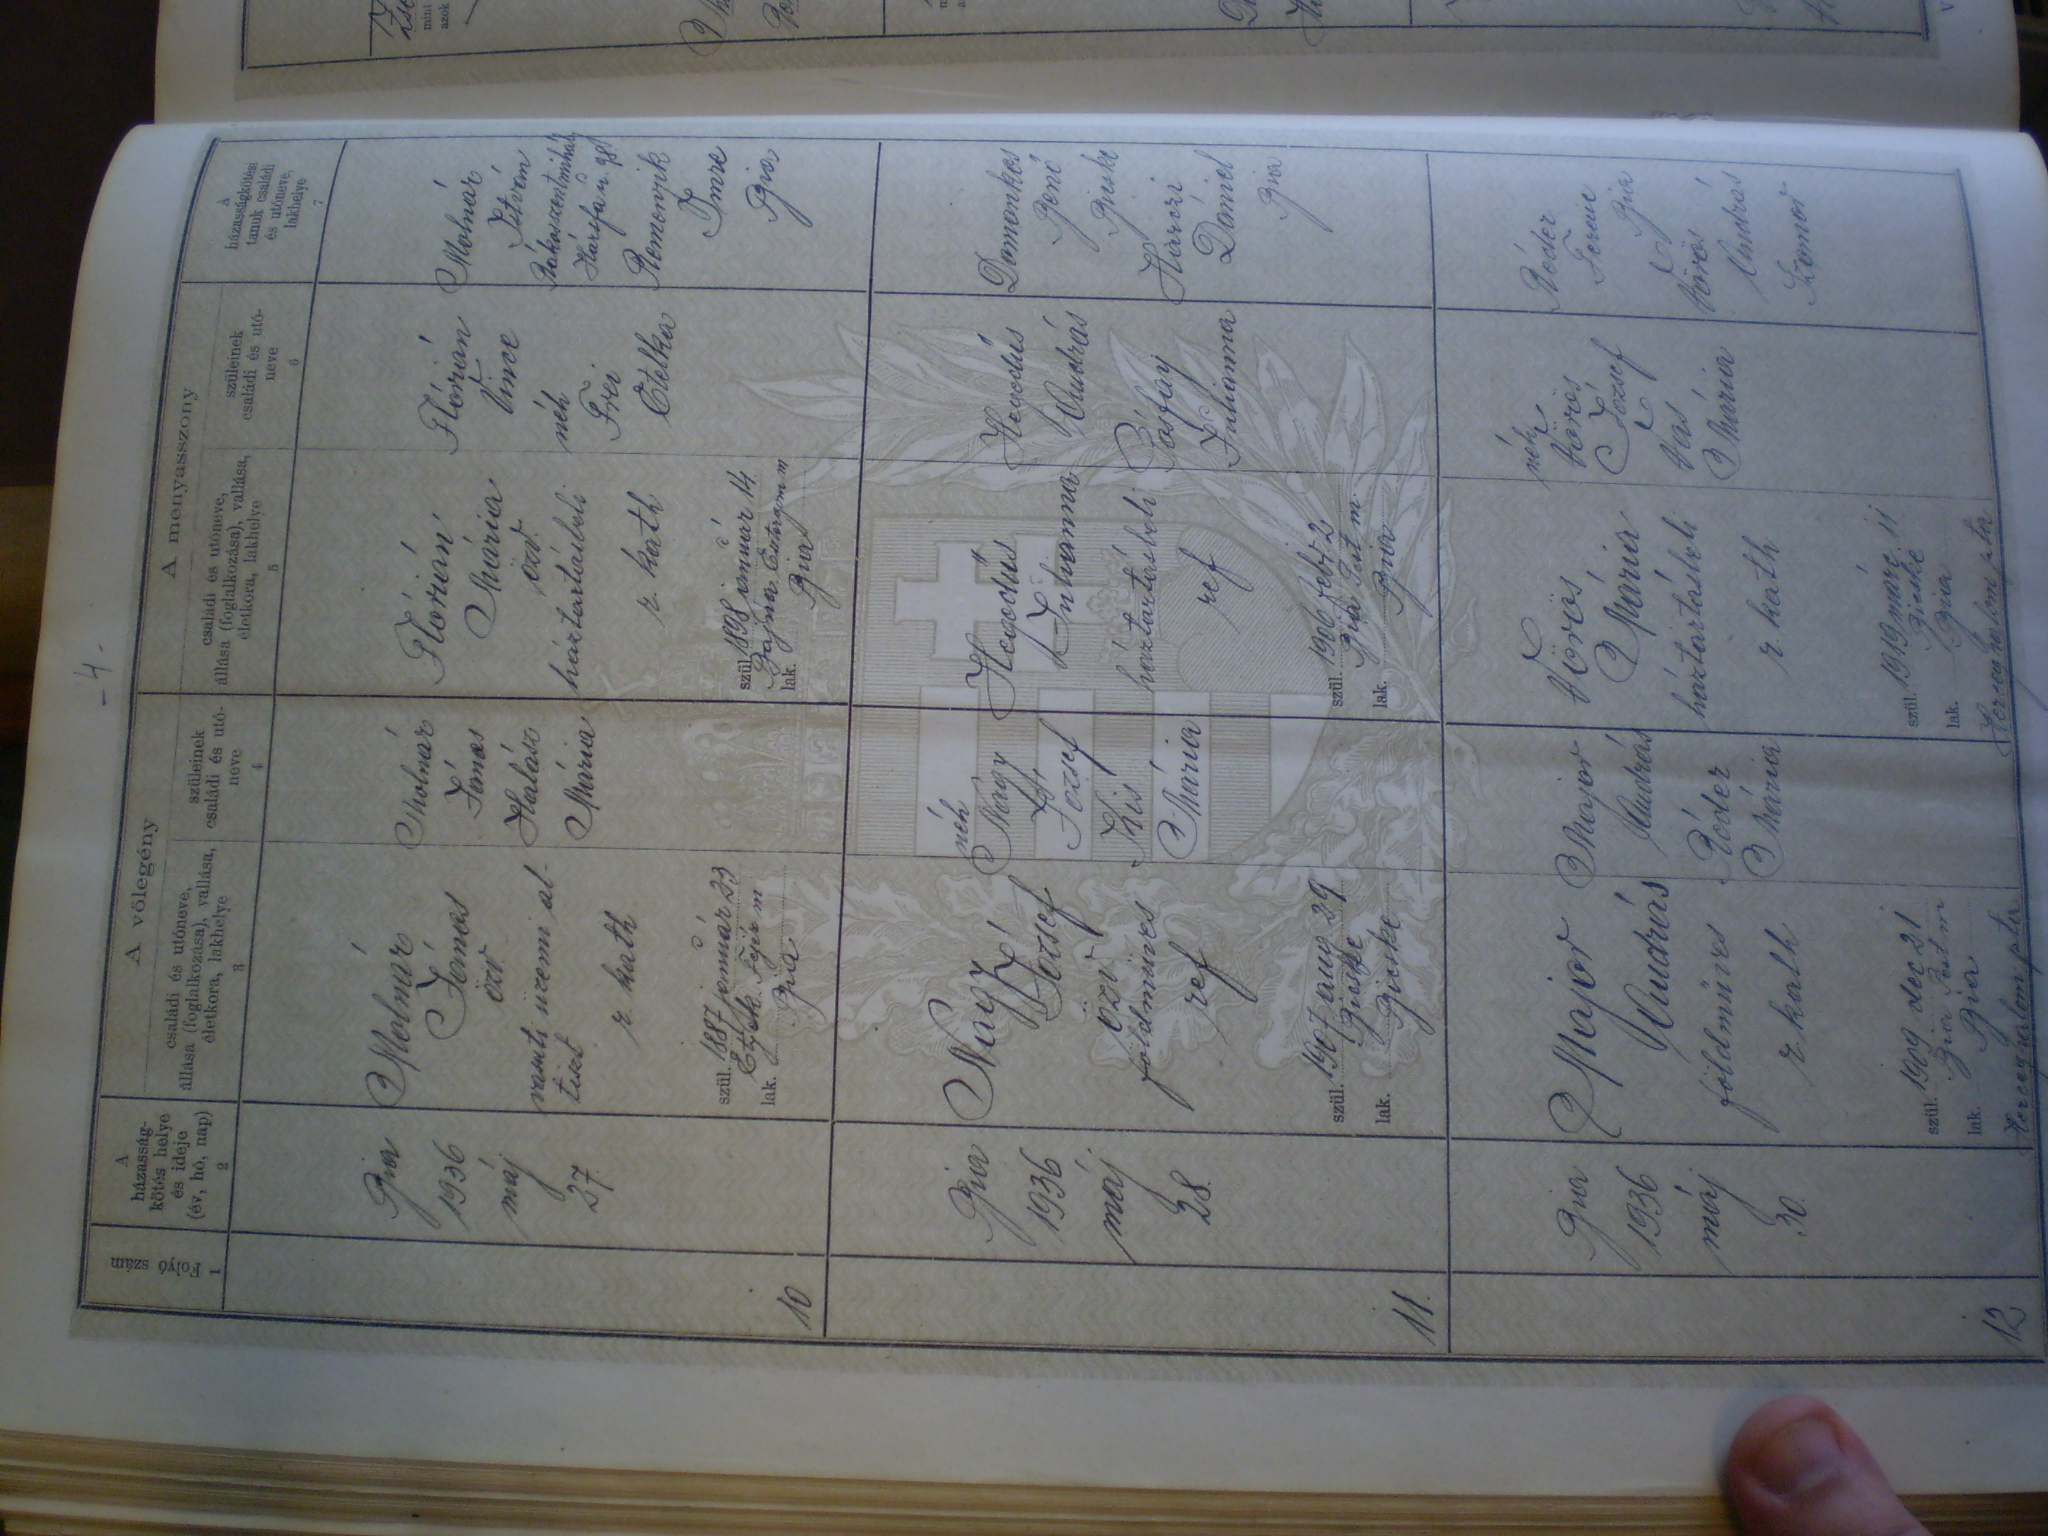 - 4 -
A
házasság-
kötés helye
és ideje
(év, hó, nap)
Folyó
szám
A vőlegény
családi és utóneve,
állása (foglalkozása), vallása,
életkora, lakhelye
szüleinek
családi és utó-
neve
A menyasszony
családi és utóneve,
állása (foglalkozása), vallása,
életkora, lakhelye
szüleinek
családi és utó-
neve
A
házasságkötési
tanuk családi
és utóneve,
lakhelye
1
2
3
4
5
6
7
10
Bia
1936
máj
27.
Molnár
János
özv.
üzemi al-
tiszt
r. kath
szül. 1887 január 23
Etyek Fejér m
lak. Bia
Molnár
János
Halász
Mária
Flórián
Mária
özv.
háztartásbeli
r. kath
szül. 1898 január 14.
Bajna Esztergom m
lak. Bia
Flórián
Vince
néh
Frei
Etelka
Molnár
István
Rákosszentmihály
Remenyik
Imre
Bia
11.
Bia
1936
máj
28.
Nagy
József
özv.
földműves
ref
szül. 1907 aug 29
Bicske
lak. Bicske
néh
Nagy
József
Kis
Mária
Hegedűs
Julianna
háztartásbeli
ref
szül. 1906 febr 2
Bia Pest m.
lak. Bia
Hegedűs
András
Bósfay
Julianna
Domonkos
Benő
Bicske
Dániel
Bia
12
Bia
1936
máj
30.
Major
András
földműves
r. kath
szül. 1909 dec 21
Bia Pest m
lak. Bia
Herceghalom pta
Major
András
Róder
Mária
Vörös
Mária
háztartásbeli
r. kath
szül. 1919 márc. 11
Bicske
lak. Bia
Herceghalom pta
néh
Vörös
József
Vas
Mária
Róder
Ferenc
Bia
Vörös
András
Zsomor